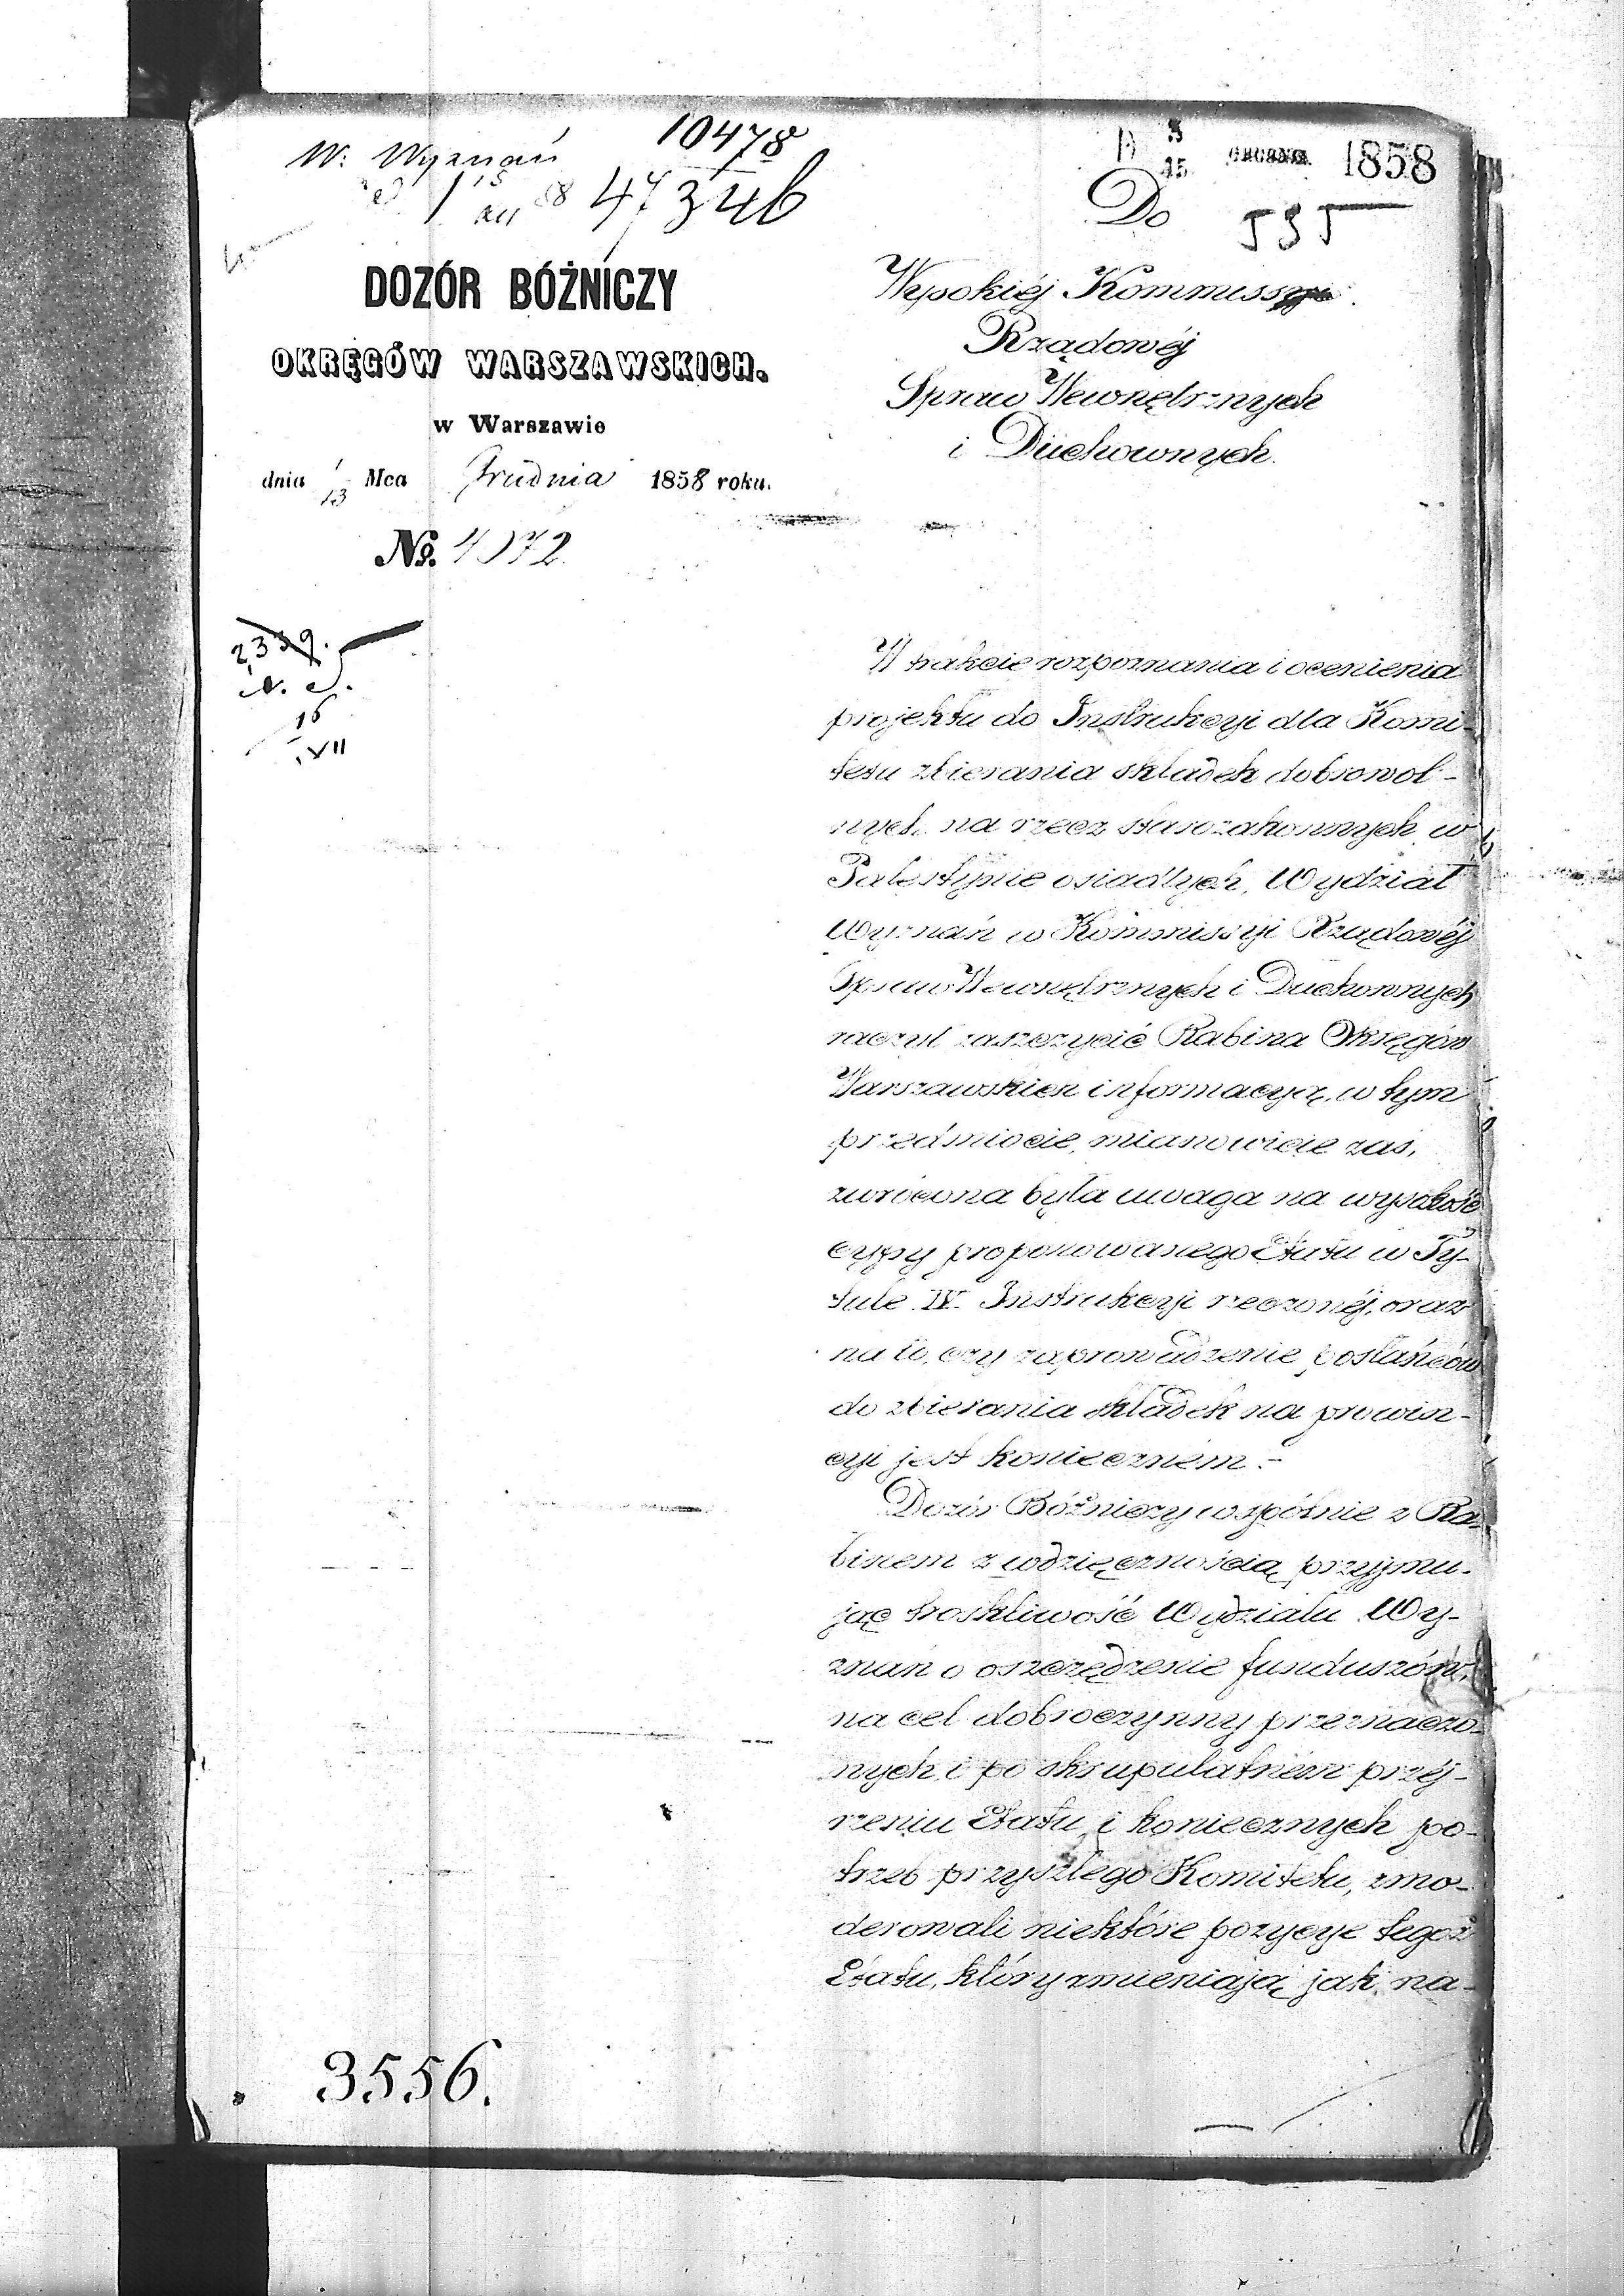 10478
W: Wyznań
47346
1858
Do
535
DOZÓR BÓŻNICZY
OKRĘGÓW WARSZAWSKICH.
w Warszawie
dnia 1/13 Mca Grudnia 1858 roku.
No. 4072
Wysokiéj Kommissyi
Rządowéj
Spraw Wewnętrznych
i Duchownych.
2339.
16
XII
W trakcie rozpoznania i ocenienia
projektu do Instrukcyi dla Komi-
tetu zbierania składek dobrowol-
nych na rzecz starozakonnych w
Palestynie osiadłych, Wydział
Wyznań w Kommissyi Rządowéj
Spraw Wewnętrznych i Duchownych
raczył zaszczycić Rabina Okręgów
Warszawskich informacyą, w tym
przedmiocie, mianowicie zaś,
zwrócona była uwaga na wysokość
cyfry proponowanego Etatu w Ty-
tule IV. Instrukcyi rzeczonéj, oraz
na to, czy zaprowadzenie posłańców
do zbierania składek na prowin-
cyi jest koniecznem.-
Dozór Bóżniczy wspólnie z Ra-
binem z wdzięcznością przyjmu-
jąc troskliwość Wydziału Wy-
znań o oszczędzenie funduszów,
na cel dobroczynny przeznaczo-
nych i po skrupulatném przéj-
rzeniu Etatu i koniecznych po-
trzeb przyszłego Komitetu, zmo-
derowali niektóre pozycye tegoż
Etatu, który zmieniają jak na-
3556.